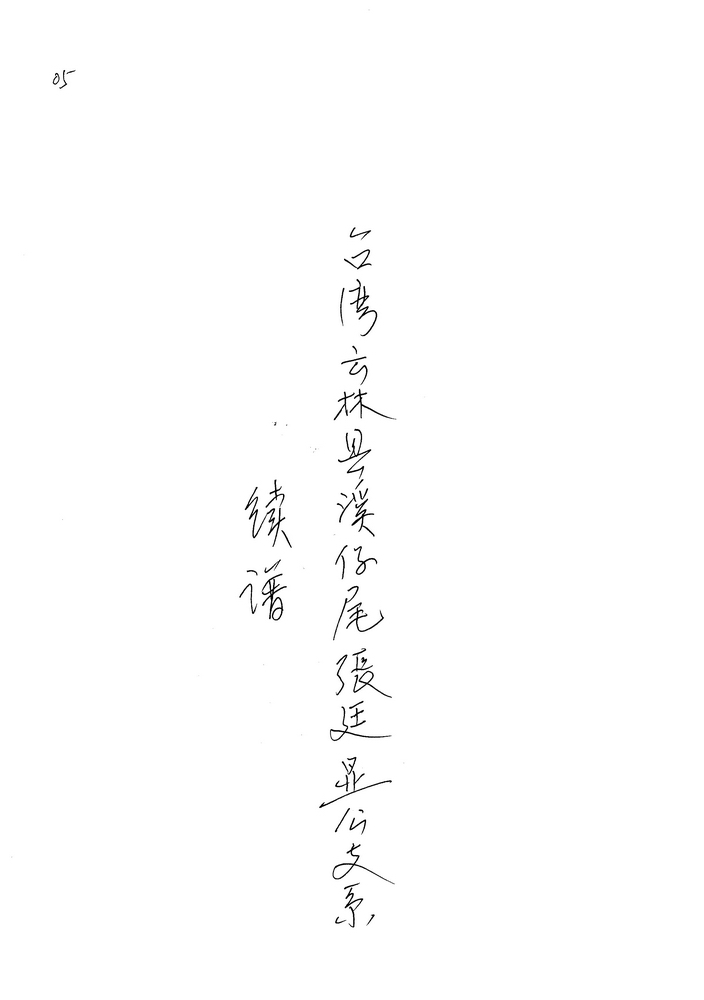 05
台湾云林县溪仔尾張廷显公支系
续谱